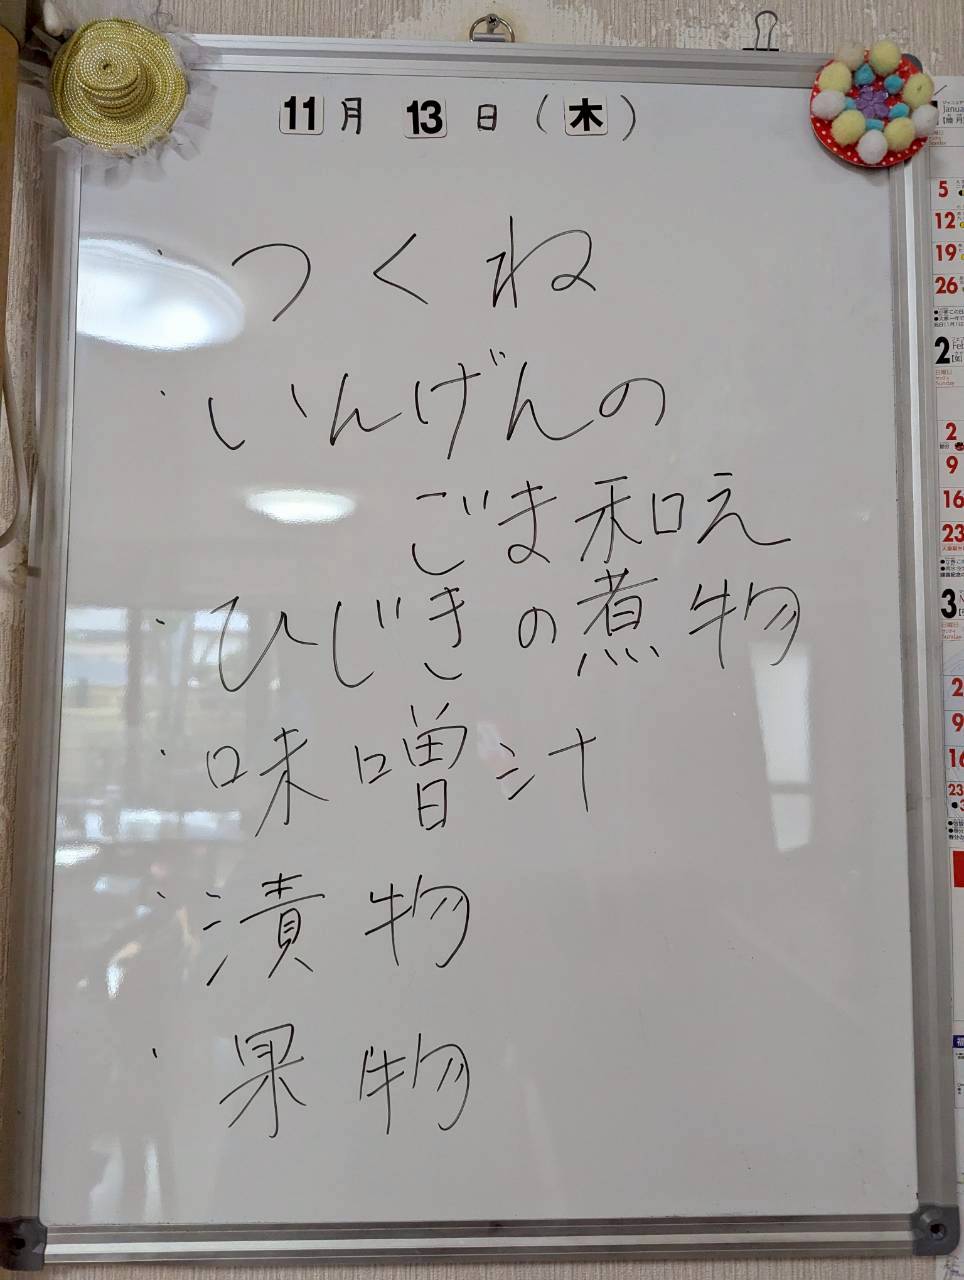 11月 13日(木)
・つくね
・いんげんの
ごま和え
・ひじきの煮物
・味噌汁
・漬物
・果物
5
12
19
26
2
2
9
16
23
3
2
9
16
23